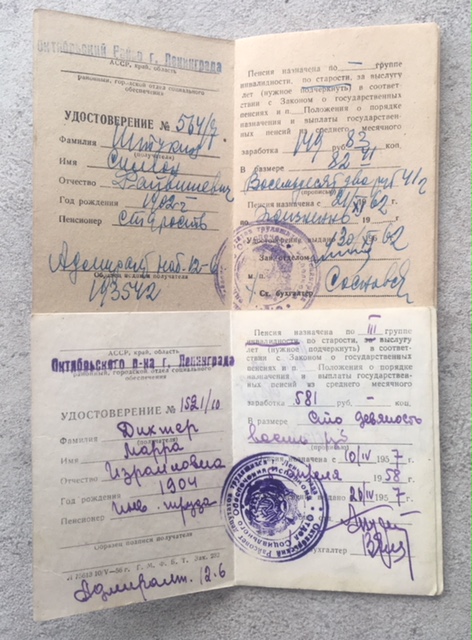 Октябрьский Район г. Ленинграда
АССР, край, область
районный, городской отдел социального
обеспечения
УДОСТОВЕРЕНИЕ № 564/9
Фамилия
(получателя)
Имя
Отчество
Год рождения 1902 г
Пенсионер старость
Адмиралт. наб. 12-6
Образец подписи получателя
193542
Пенсия назначена по — группе
инвалидности, по старости, за выслугу
лет (нужное подчеркнуть) в соответ-
ствии с Законом о государственных
пенсиях и п Положения о порядке
назначения и выплаты государствен-
ных пенсий из среднего месячного
заработка 149 руб. 83 коп.
В размере 82 41
Восемьдесят два руб 41 к
(прописью)
Пенсия назначена с 21/XI 62
по пожизненно 19
Удостоверение выдано 30/XI 62
Зав. отделом
м. п.
Ст. бухгалтер
АССР, край, область
Октябрьского р-на г. Ленинграда
районный, городской отдел социального
обеспечения
УДОСТОВЕРЕНИЕ № 1521/10
Фамилия Диктер
(получателя)
Имя Марра
Отчество Израилевна
Год рождения 1904
Пенсионер инв. труда
Образец подписи получателя
Адмиралт. 12.6
Пенсия назначена по III группе
инвалидности, по старости, за выслугу
лет (нужное подчеркнуть) в соответ-
ствии с Законом о государственных
пенсиях и п Положения о порядке
назначения и выплаты государствен-
ных пенсий из среднего месячного
заработка 581 руб. — коп.
В размере Сто девяносто
восемь рб
Пенсия назначена с 10/IV 1957
апреля 1958
выдано 20/IV 1957
бухгалтер